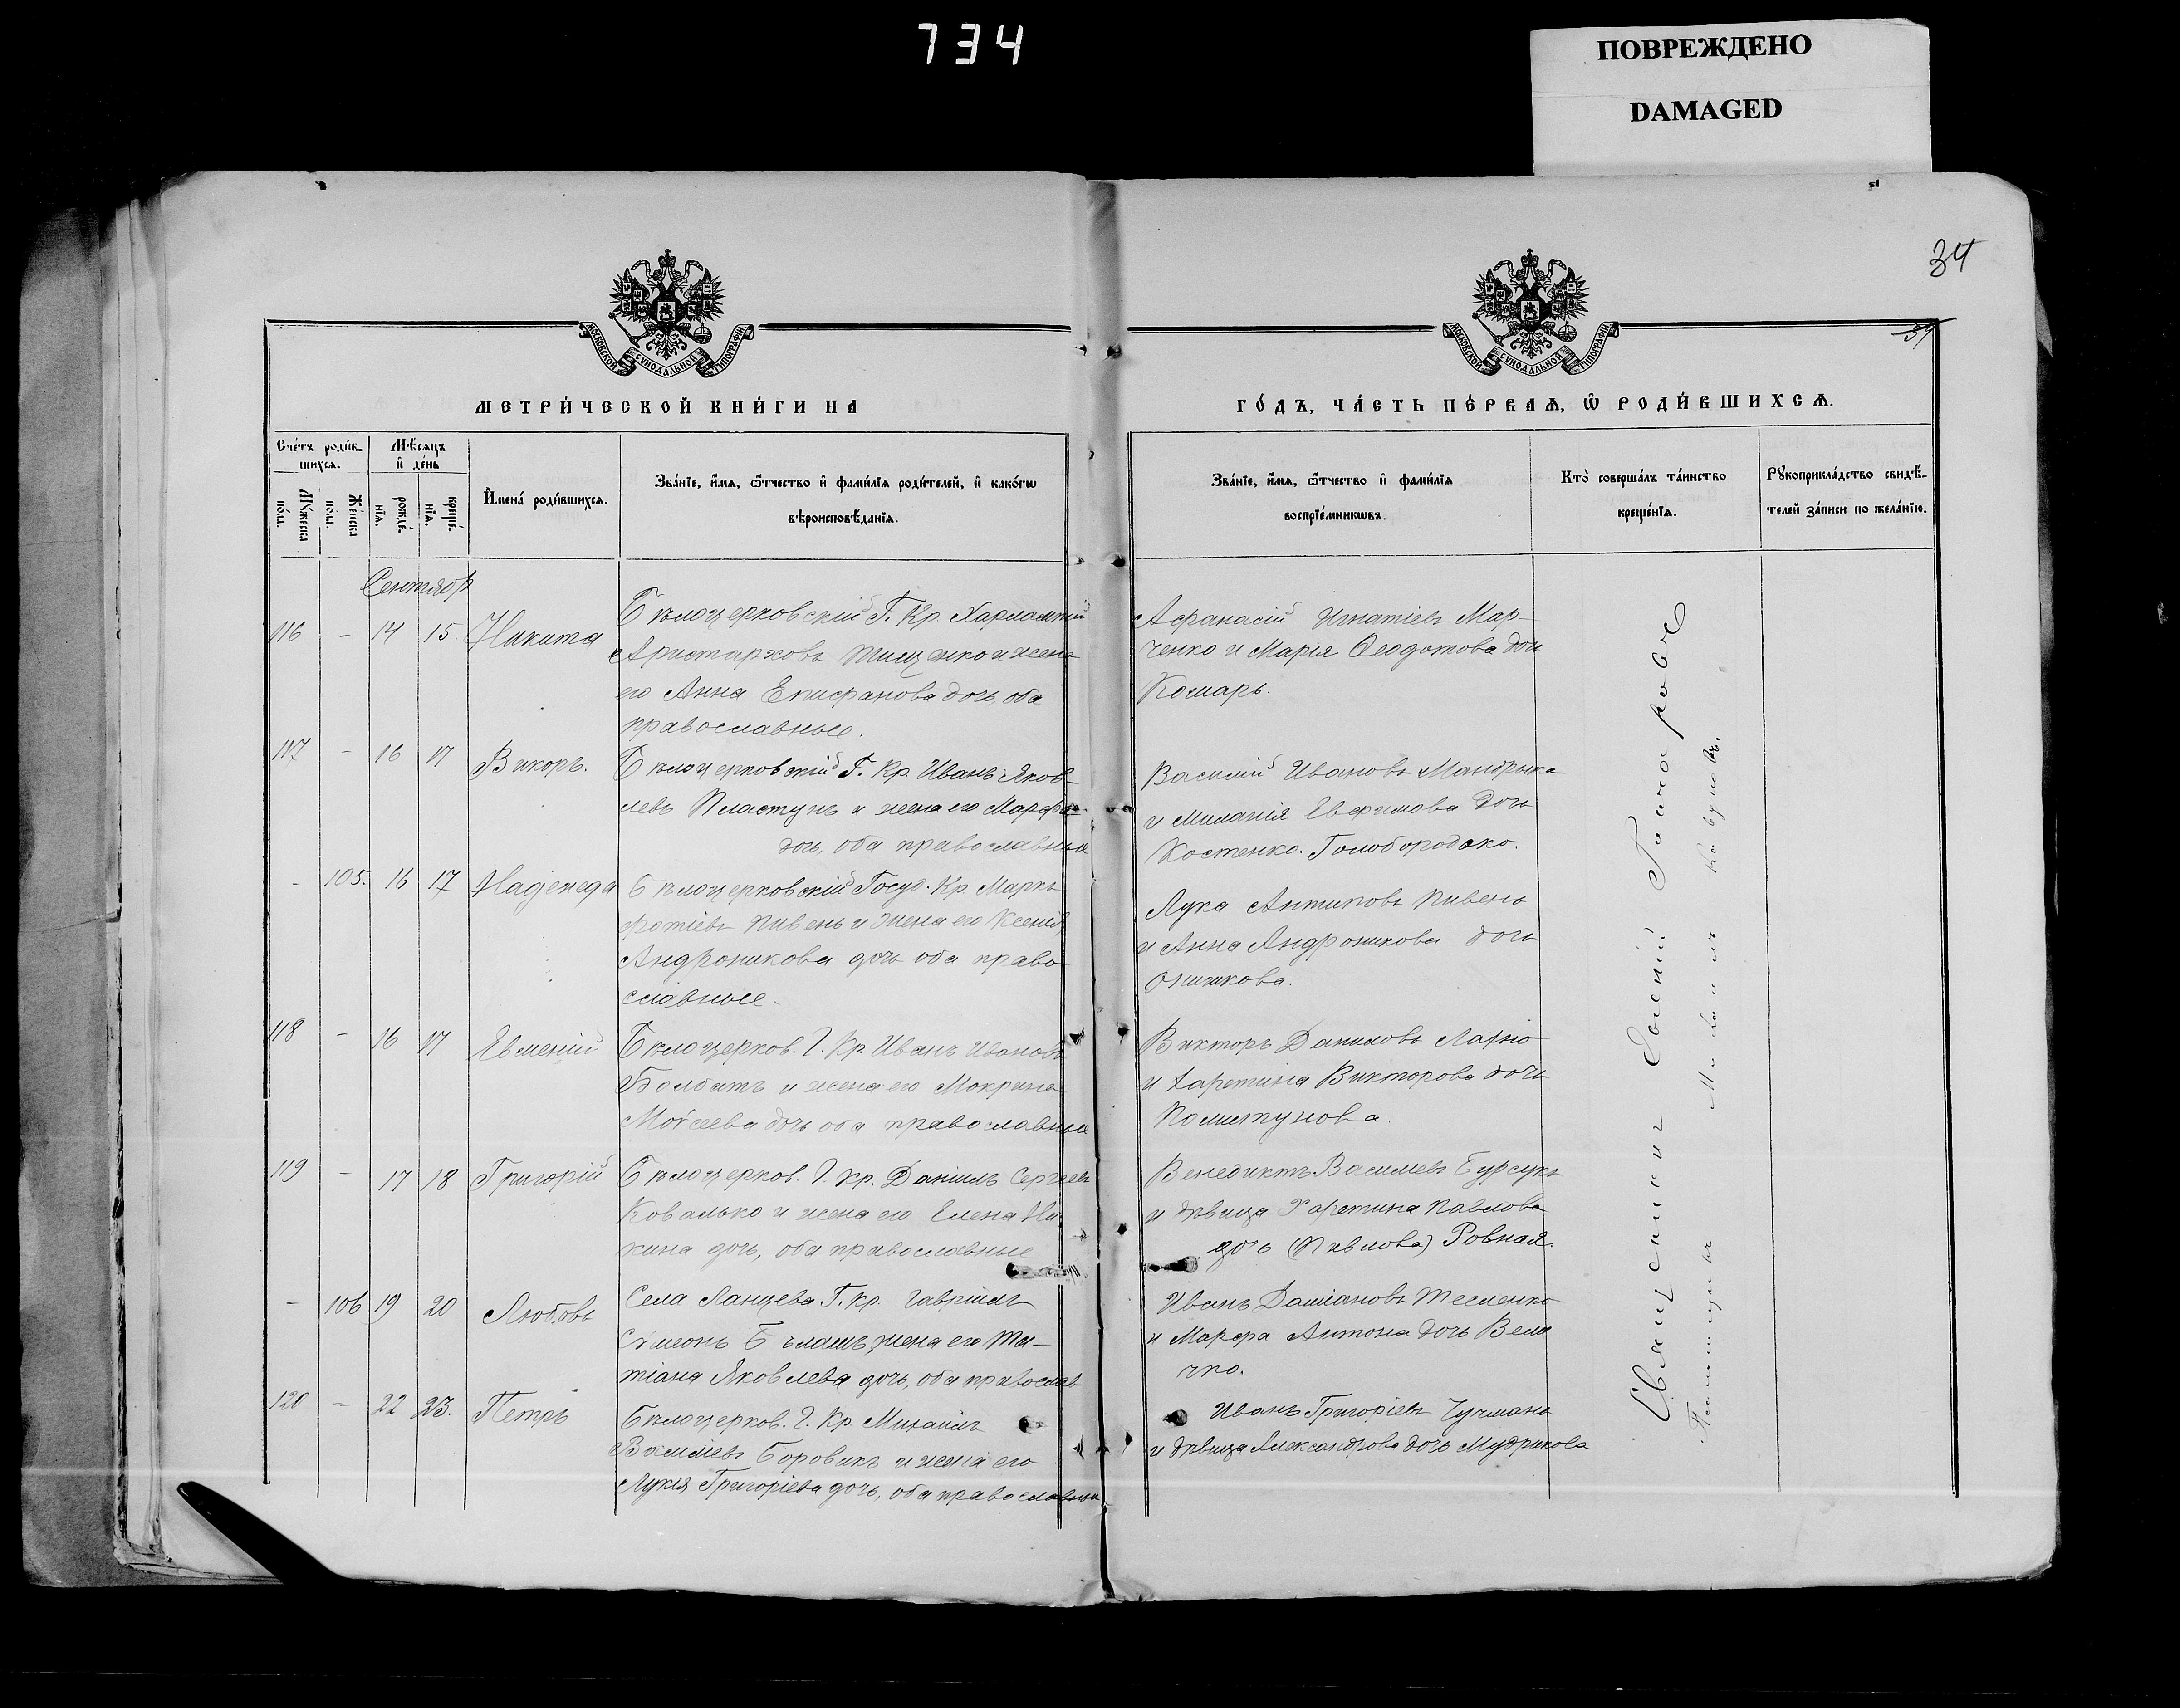 734
ПОВРЕЖДЕНО
DAMAGED
34
МОСКОВСКОЙ СѴНОДАЛЬНОЙ ТИПОГРАФІИ
МОСКОВСКОЙ СѴНОДАЛЬНОЙ ТИПОГРАФІИ
МЕТРИ́ЧЕСКОЙ КНИ́ГИ НА
ГО́ДЪ, ЧА́СТЬ ПЕ́РВАЯ, Ѡ РОДИ́ВШИХСЯ.
Сче́тъ роди́в-
шихся.
Мѣсяцъ
и де́нь
Му́жеска
по́ла.
Же́нска
по́ла.
рожде́-
нія.
креще́-
нія.
Имена́ роди́вшихся.
Зва́ніе, и́мя, ѻ҆́тчество и фами́лія роди́телей, и како́гѡ
вѣроисповѣ́данія.
Зва́ніе, и́мя, ѻ҆́тчество и фами́лія
воспріе́мникѡвъ.
Кто̀ соверша́лъ та́инство
креще́нія.
Рꙋкоприкла́дство свидѣ́-
телей за́писи по жела́нію.
Сентябр
116 – 14 15. Никита
Бѣлоцерковскій Г. Кр. Харлампій
Аристарховъ Тищенко и жена
его Анна Епифанова дочь, оба
православные.
Афанасій Игнатіевъ Мар-
ченко и Марія Ѳеодотова дочь
Кошарь.
117 – 16 17 Викоръ.
Бѣлоцерковскій Г. Кр. Иванъ Яков
левъ Пластунъ и жена его Марфа
дочь, оба православные
Василій Ивановъ Мандрыка
и Миланія Евфимова дочь
Костенко. Голобородько.
– 105. 16 17 Надежда
Бѣлоцерковскій Госуд. Кр. Маркъ
Фотіевъ Пивень и жена его Ксенія
Андроникова дочь оба право
славные.
Лука Антиповъ Пивень
и Анна Андроникова дочь
118 – 16 17 Евменій
Бѣлоцерков. Г. Кр. Иванъ Ивановъ
и жена его Мокрина
Моѵсеева дочь оба православные
Викторъ Даниловъ Лахно
и Харетина Викторова дочь
119 – 17 18 Григорій
Бѣлоцерков. Г. Кр. Даніилъ Сергеевъ
Ковалько и жена его Елена Ни
кина дочь, оба православные
Венедиктъ Василіевъ Бурсукъ
и дѣвица Харетина Павлова
дочь (Павлова) Ровная.
– 106 19 20 Любовь
Села Ланцева Г. Кр. Гавріилъ
Сѵмеонъ Бѣлашъ, жена его Та-
тіана Яковлева дочь, оба православ
Иванъ Даміановъ Тесленко
и Марфа Антона дочь Вели
чко.
120 – 22 23. Петръ
Бѣлоцерков. Г. Кр. Михаилъ
Василіевъ Боровикъ и жена его
Лукія Григоріева дочь, оба православные
Иванъ Григоріевъ Чучманъ
и дѣвица Александрова дочь Мудрикова
Священникъ
Псаломщикъ Михаилъ